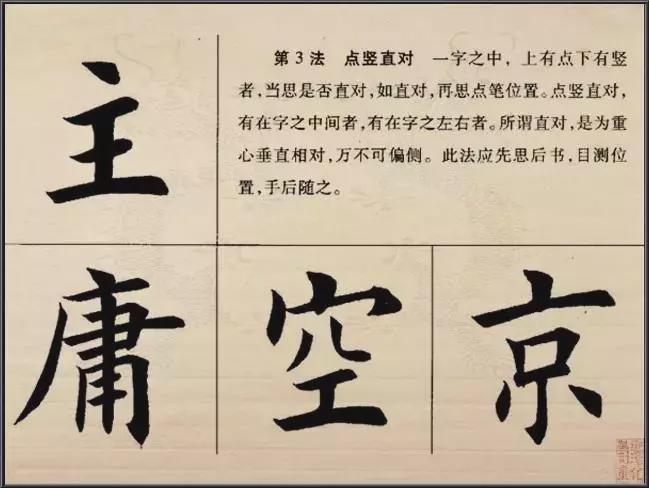 主
第3法 点竖直对 一字之中，上有点下有竖
者，当思是否直对，如直对，再思点笔位置。点竖直对，
有在字之中间者，有在字之左右者。所谓直对，是为重
心垂直相对，万不可偏侧。此法应先思后书，目测位
置，手后随之。
庸 空 京